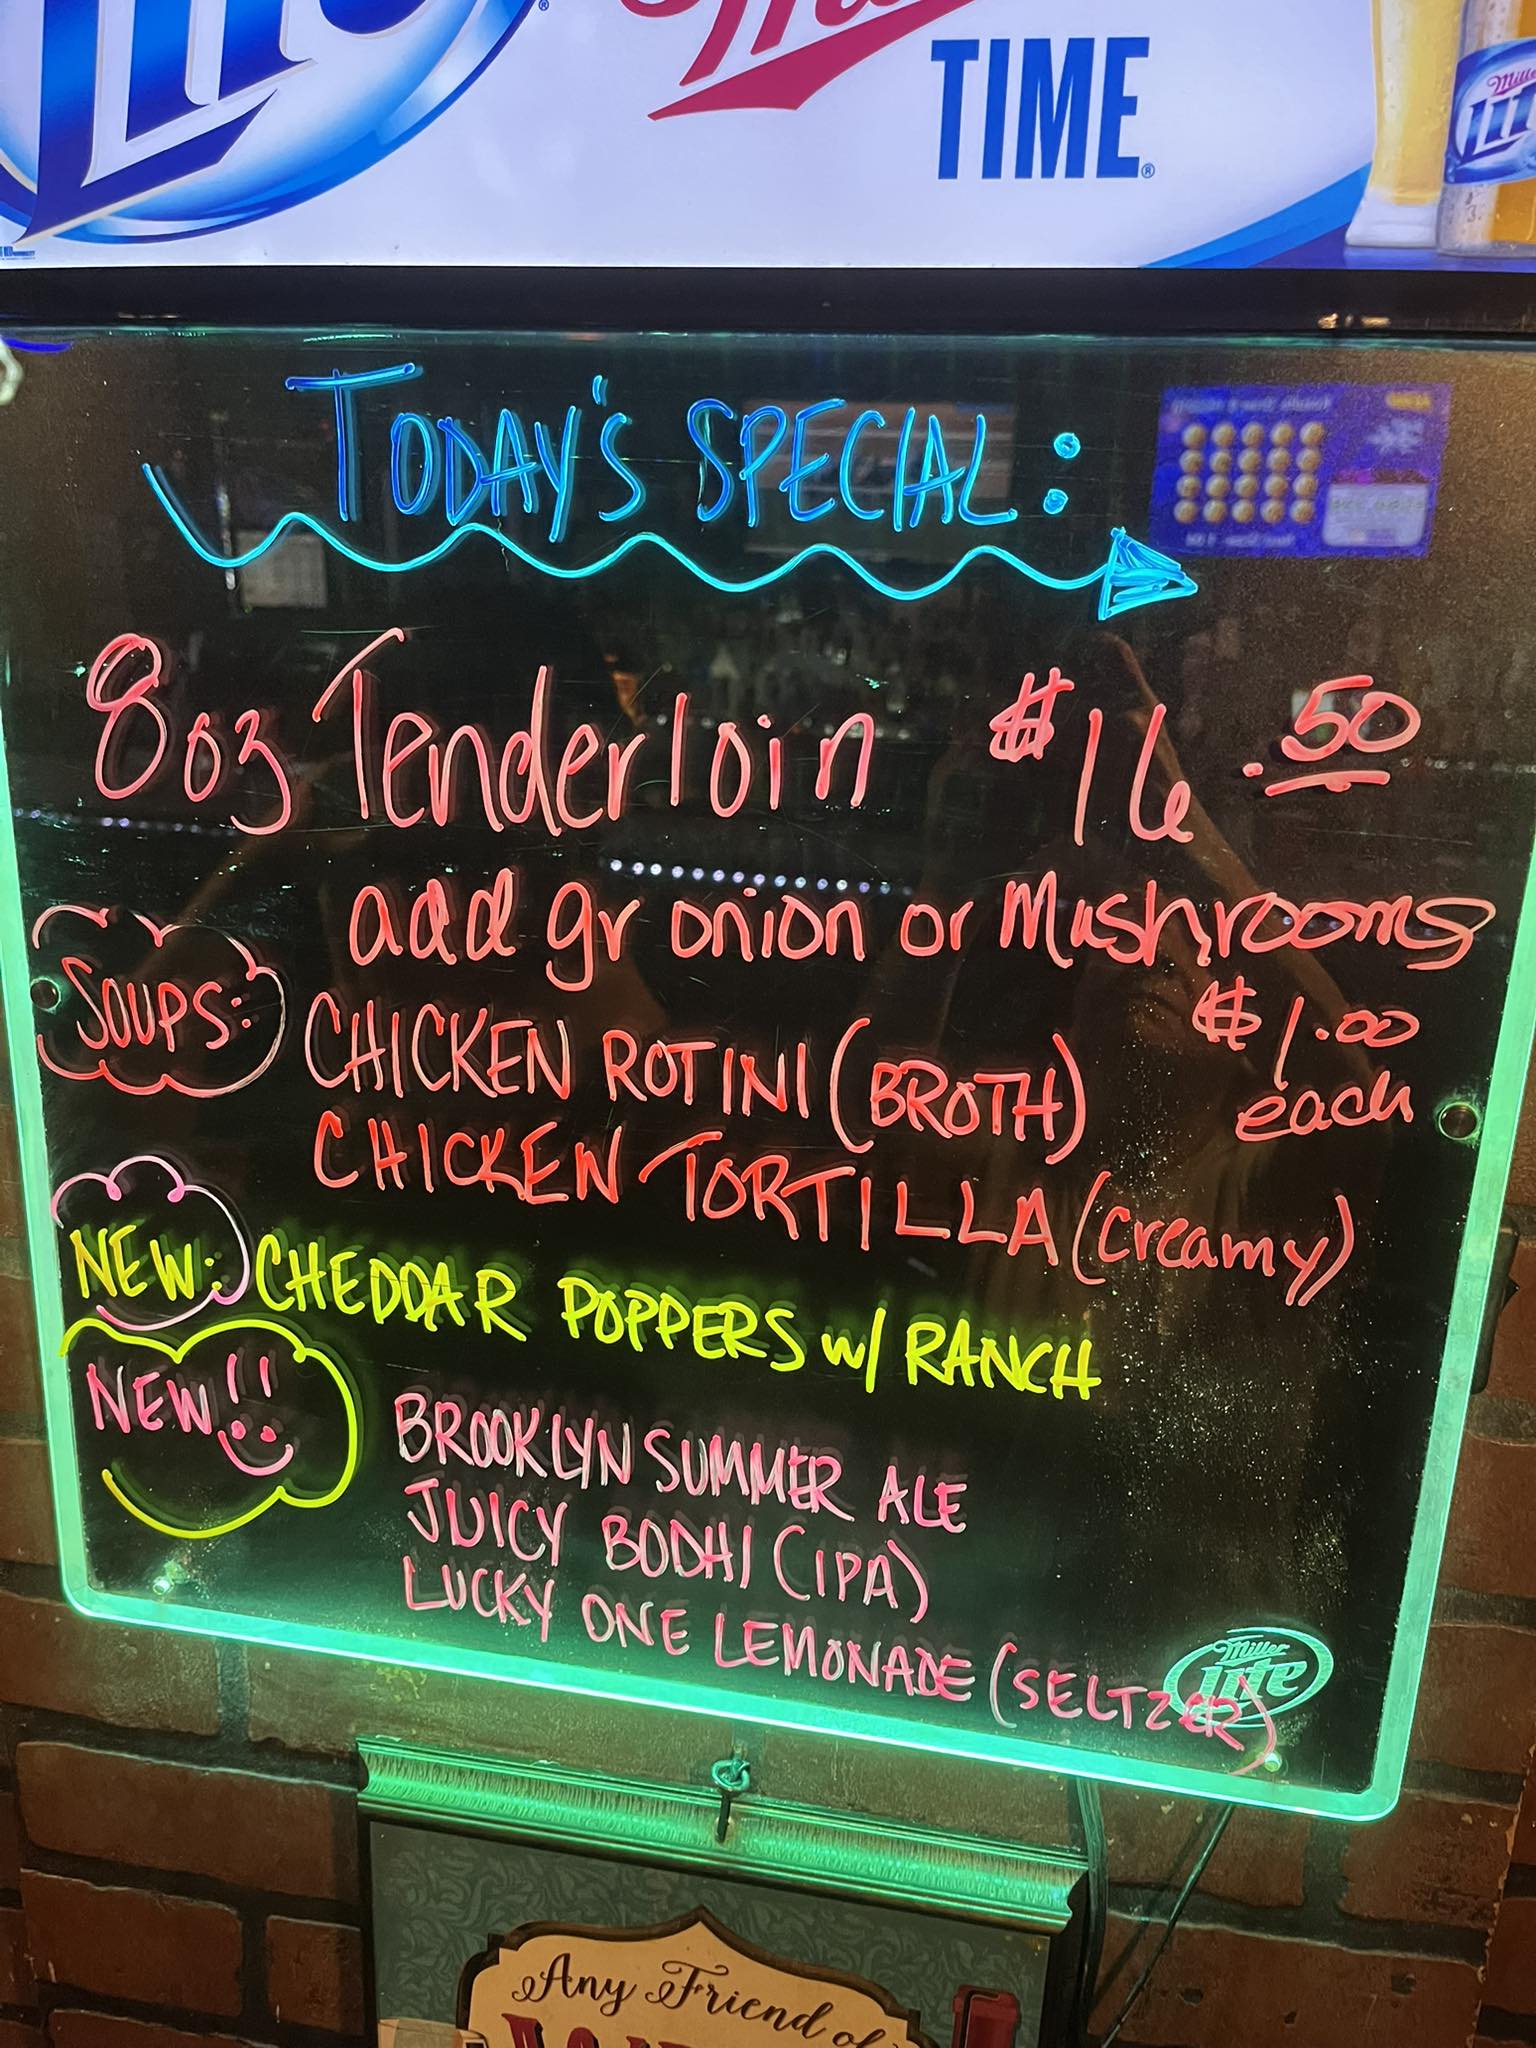 TIME
Miller
Lite
TODAY'S SPECIAL:
8oz Tenderloin $16.50
add gr onion or Mushrooms
$1.00
each
SOUPS:
CHICKEN ROTINI (BROTH)
CHICKEN TORTILLA (creamy)
NEW: CHEDDAR POPPERS w/ RANCH
NEW!!
BROOKLYN SUMMER ALE
JUICY BODHI (IPA)
LUCKY ONE LEMONADE (SELTZER)
Miller
Lite
Any Friend of